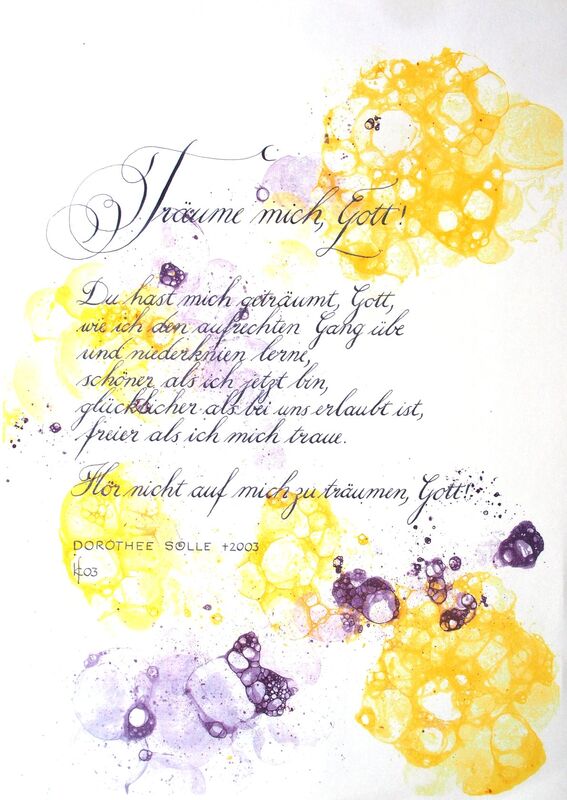 Träume mich, Gott!
Du hast mich geträumt, Gott,
wie ich den aufrechten Gang übe
und niederknien lerne,
schöner als ich jetzt bin,
glücklicher als bei uns erlaubt ist,
freier als ich mich traue.
Hör nicht auf mich zu träumen, Gott!
DOROTHEE SÖLLE +2003
03